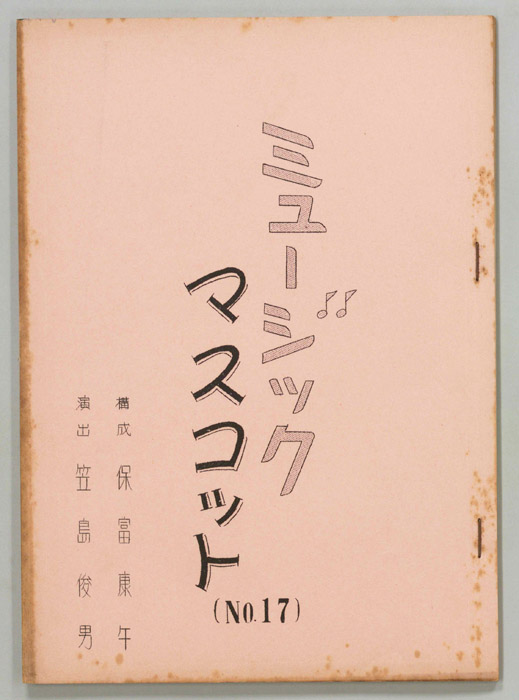 ミュージック
マスコット
(NO.17)
構成 保富康午
演出 笠島俊男